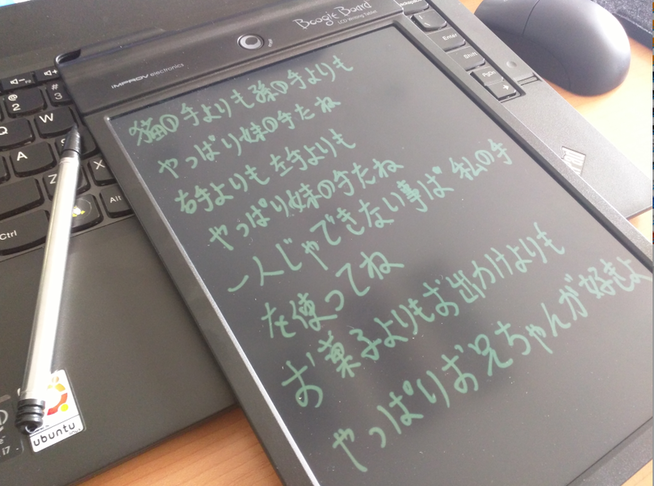 Boogie Board
LCD Writing Tablet
IMPROV electronics
猫の手よりも孫の手よりも
やっぱり妹の手だね
右手よりも左手よりも
やっぱり妹の手だね
一人じゃできない事は 私の手
を使ってね
お菓子よりもお出かけよりも
やっぱりお兄ちゃんが好きよ
@
2
#
3
Q
W
A
S
Z
X
Ctrl
Alt
Enter
Shift
ubuntu
i7